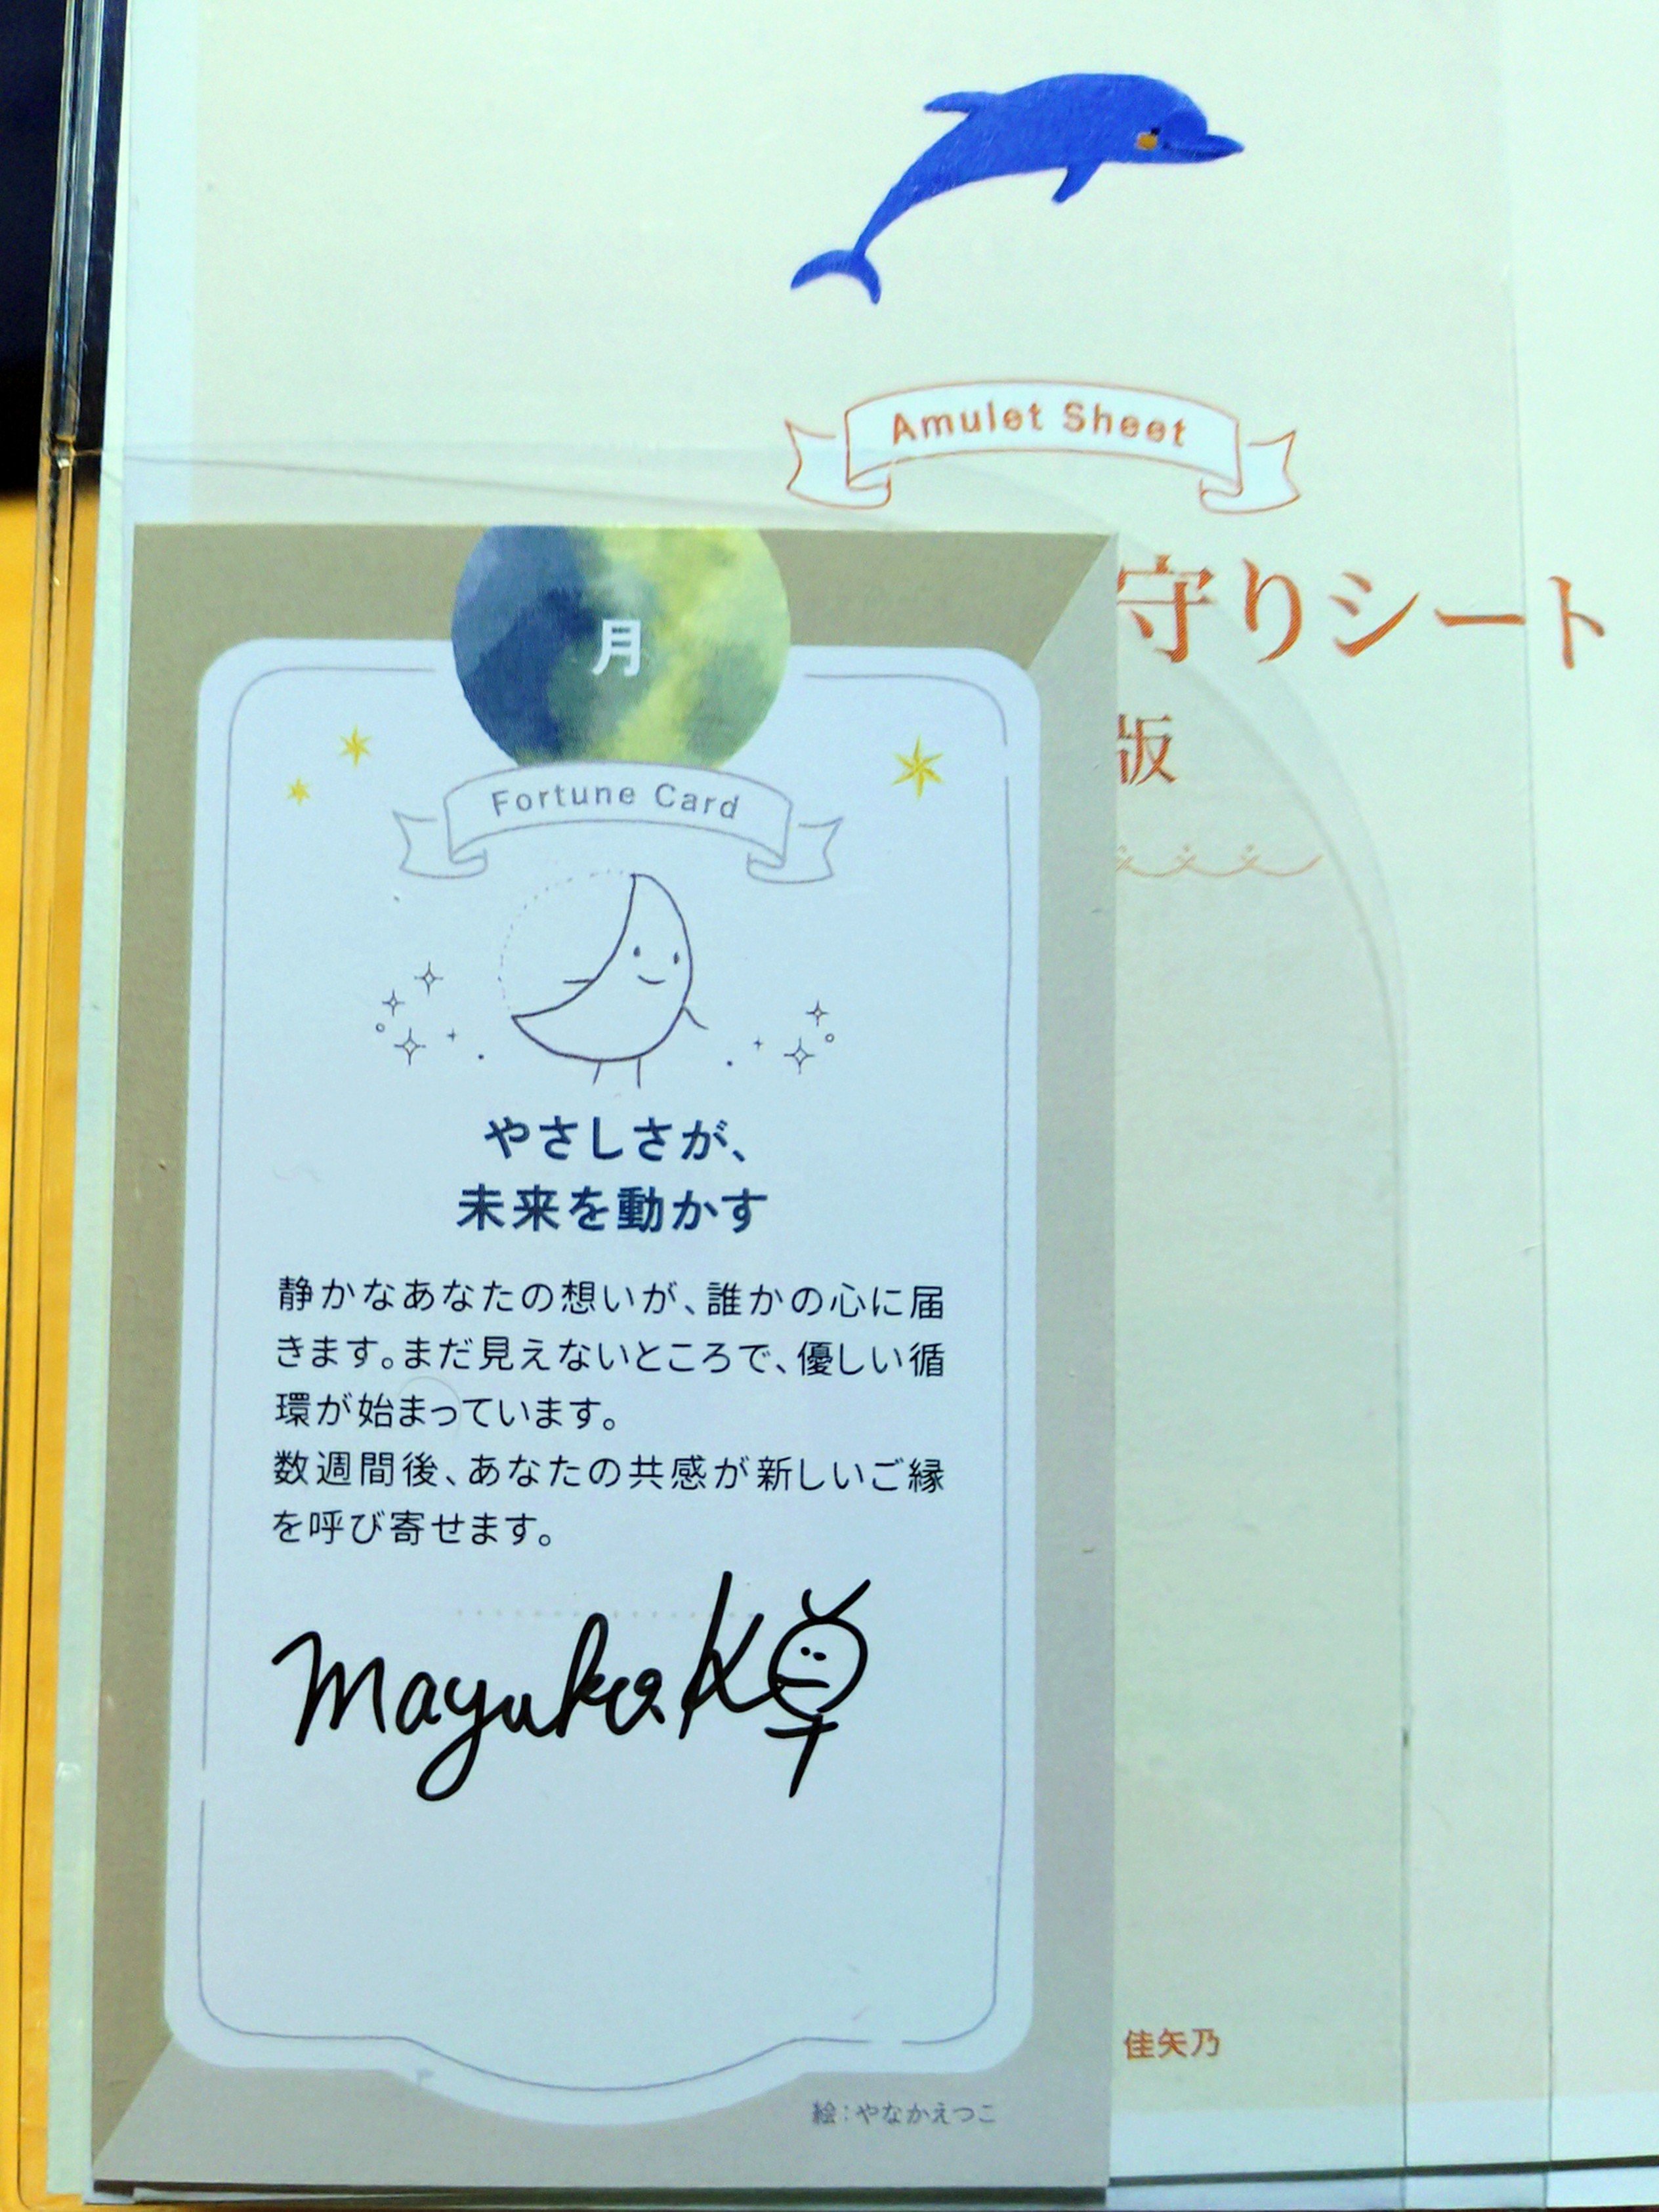 Amulet Sheet
守りシート
版
月
Fortune Card
やさしさが、
未来を動かす
静かなあなたの想いが、誰かの心に届
きます。まだ見えないところで、優しい循
環が始まっています。
数週間後、あなたの共感が新しいご縁
を呼び寄せます。
Mayuka K
佳矢乃
絵：やなかえつこ